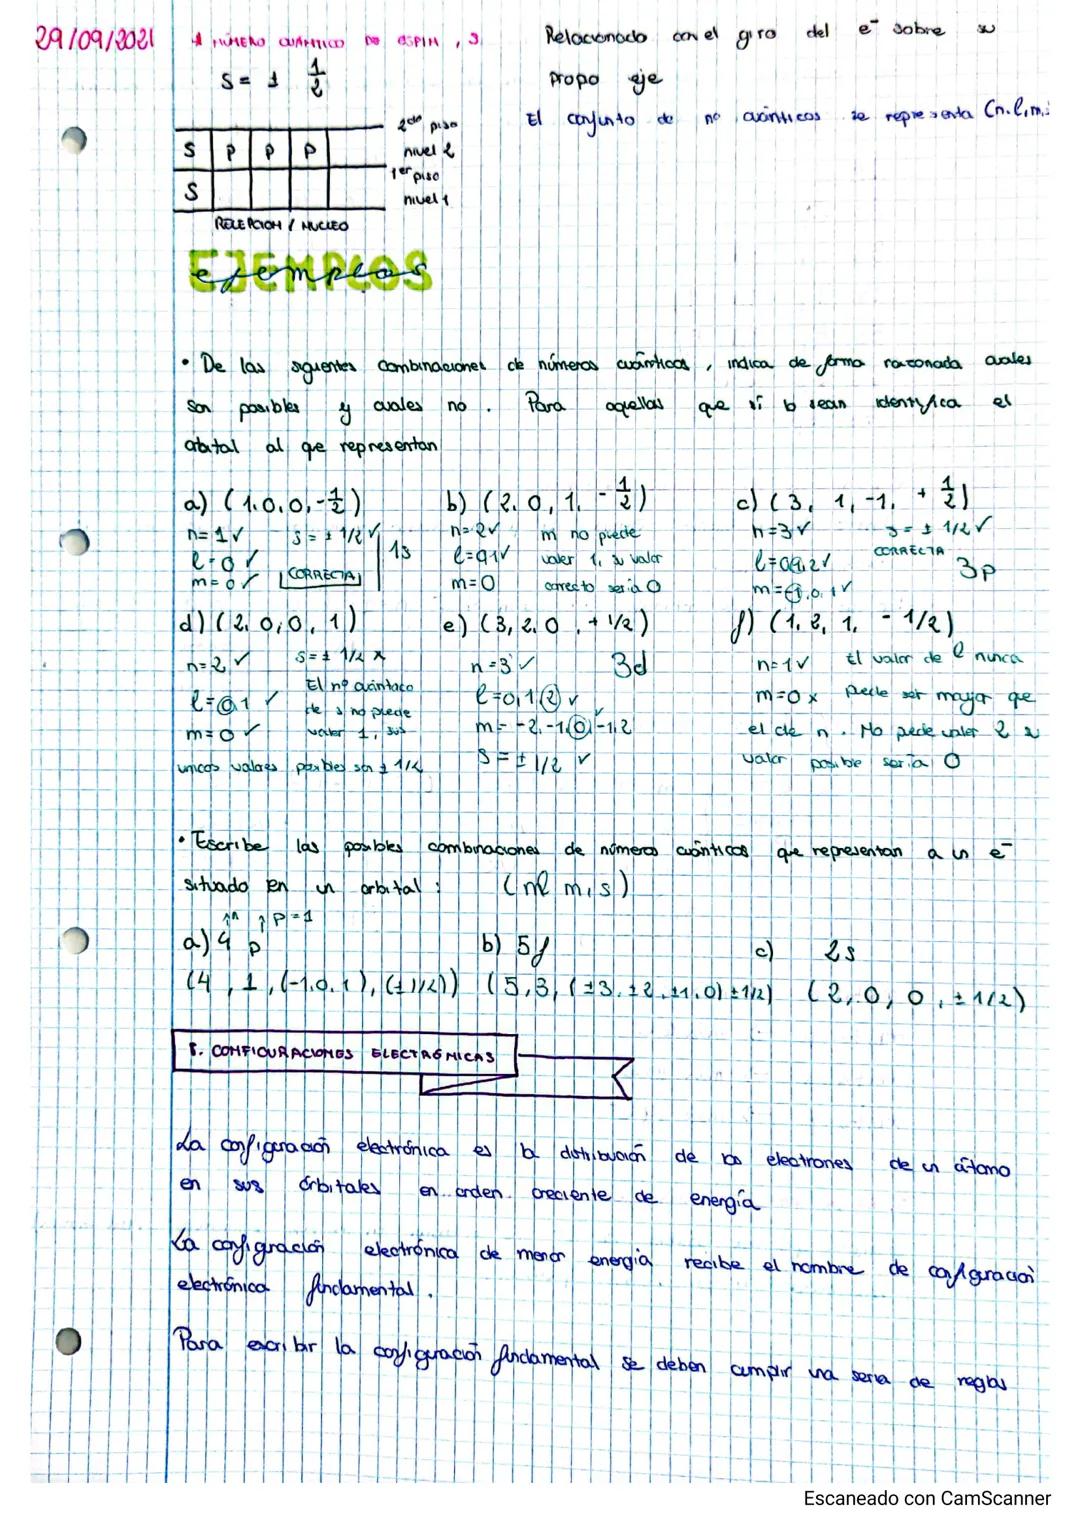 29/09/2021
* NÚMERO CUÁNTICO DE ESPIN, S
Relacionado con el giro del e⁻ sobre su
S = ± 1/2
propo eje
El conjunto de nº cuánticos se representa (n.l,m,s
2do piso
S P P P nivel 2
1er piso
S
nivel 1
RECEPCION / NUCLEO
EJEMPLOS
ejemplos
• De las siguientes combinaciones de números cuánticos, indica de forma razonada cuales
son posibles y cuales no. Para aquellas que sí lo sean identifica el
orbital al qe representan
a) (1.0.0,-1/2) b) (2,0,1,-1/2) c) (3, 1,-1, +1/2)
n=1✓ s=±1/2✓ n=2✓ m no puede n=3✓ s=±1/2✓
l=0✓ 1s l=0,1✓ valer 1, su valor l=0,1,2✓ CORRECTA
m=0✓ CORRECTA m=0 correcto sería 0 m=-1,0,1✓ 3p
d) (2,0,0,1) e) (3,2,0,+1/2) f) (1,2,1,-1/2)
n=2✓ s=±1/2 x n=3✓ 3d n=1✓ El valor de l nunca
l=0,1✓ El nº cuántaco l=0,1,2✓ m=0 x puede ser mayor que
de s no puede
m=0✓ valer 1, sus m=-2,-1,0,-1,2 el de n. No puede valer 2 su
unicos valores posibles son ± 1/2 s=±1/2✓ valor posible sería 0
• Escribe las posibles combinaciones de números cuánticos que representan a un e⁻
situado en un orbital: (nl m,s)
↑n ↑P=1
a) 4p b) 5f c) 2s
(4,1,(-1,0,1),(±1/2)) (5,3,(±3,±2,±1,0)±1/2) (2,0,0,±1/2)
8. CONFIGURACIONES ELECTRÓNICAS
La configuración electrónica es la distribución de los electrones de un átomo
en sus órbitales en orden creciente de energía
La configración electrónica de menor energía recibe el nombre de configuración
electrónica fundamental.
Para escribir la configuración fundamental se deben cumplir una seria de reglas
Escaneado con CamScanner